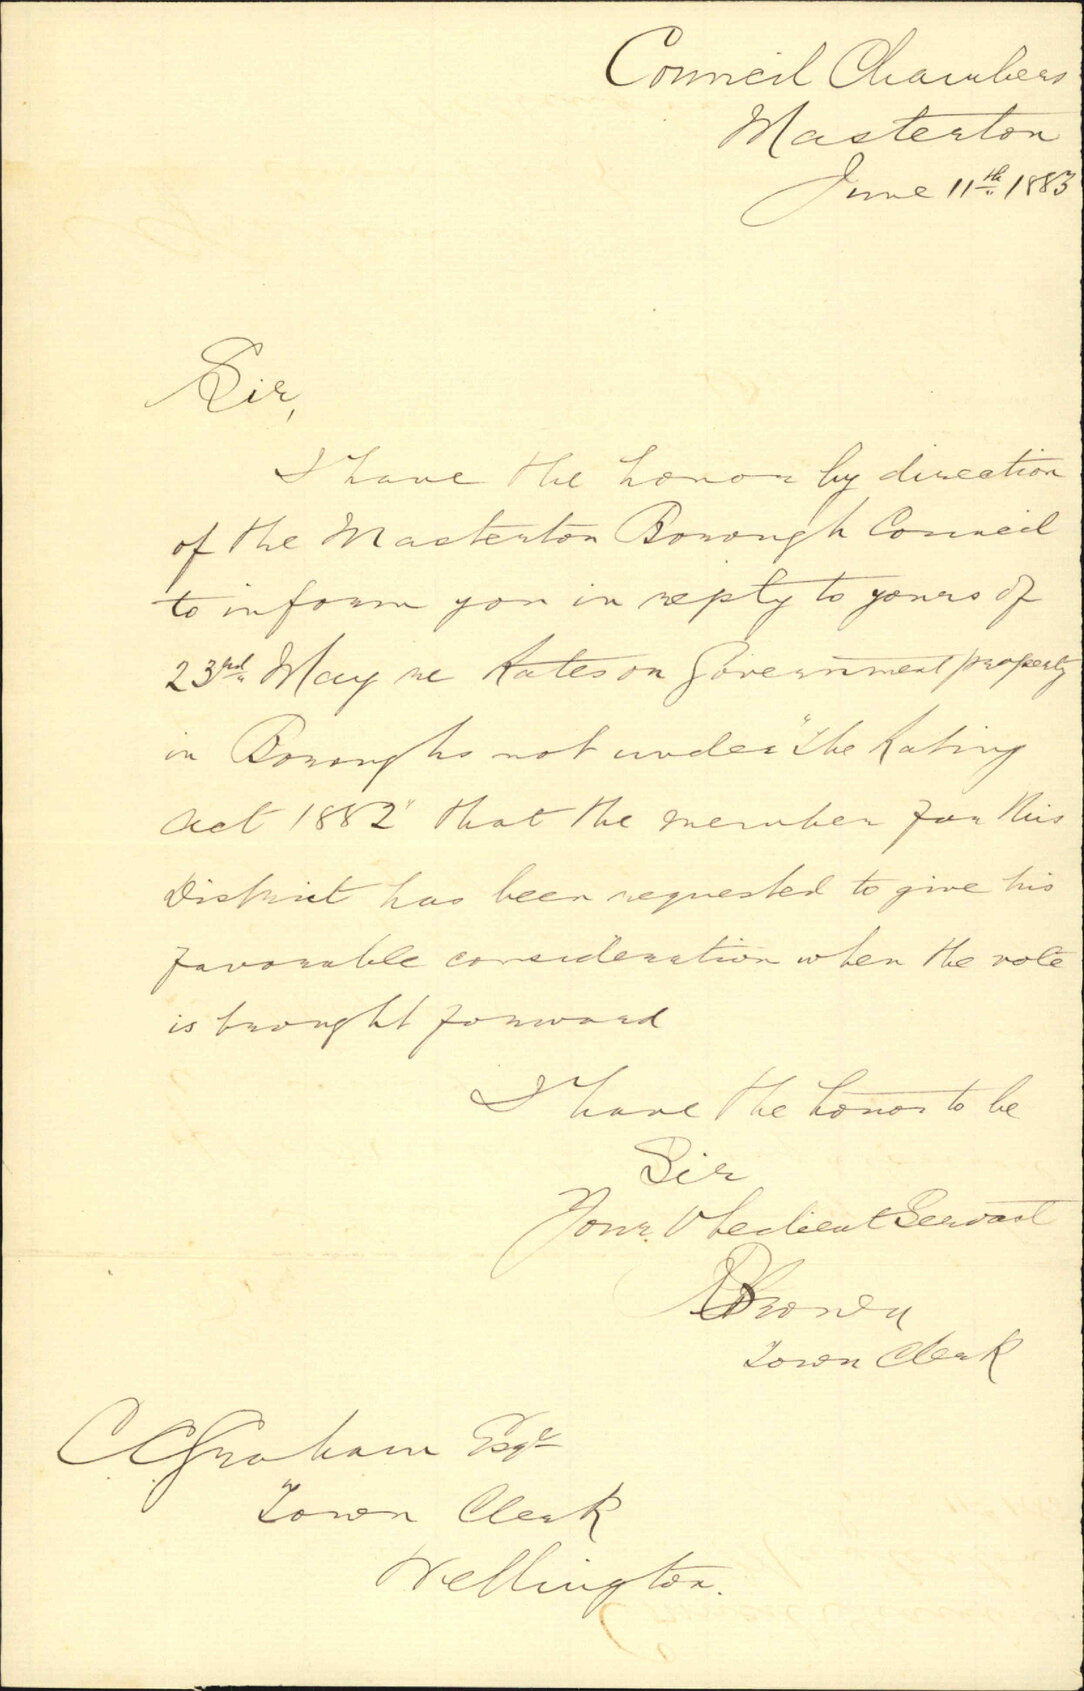 Council Chambers
Masterton
June 11th 1883
Sir,
I have the honor by direction
of the Masterton Borough Council
to inform you in reply to yours of
23rd May re Rates on Government property
in Boroughs not under "The Rating
Act 1882" that the member for this
District has been requested to give his
favorable consideration when the vote
is brought forward
I have the honor to be
Sir
Your Obedient Servant
Brown
Town Clerk
C C Graham Esqr
Town Clerk
Wellington.